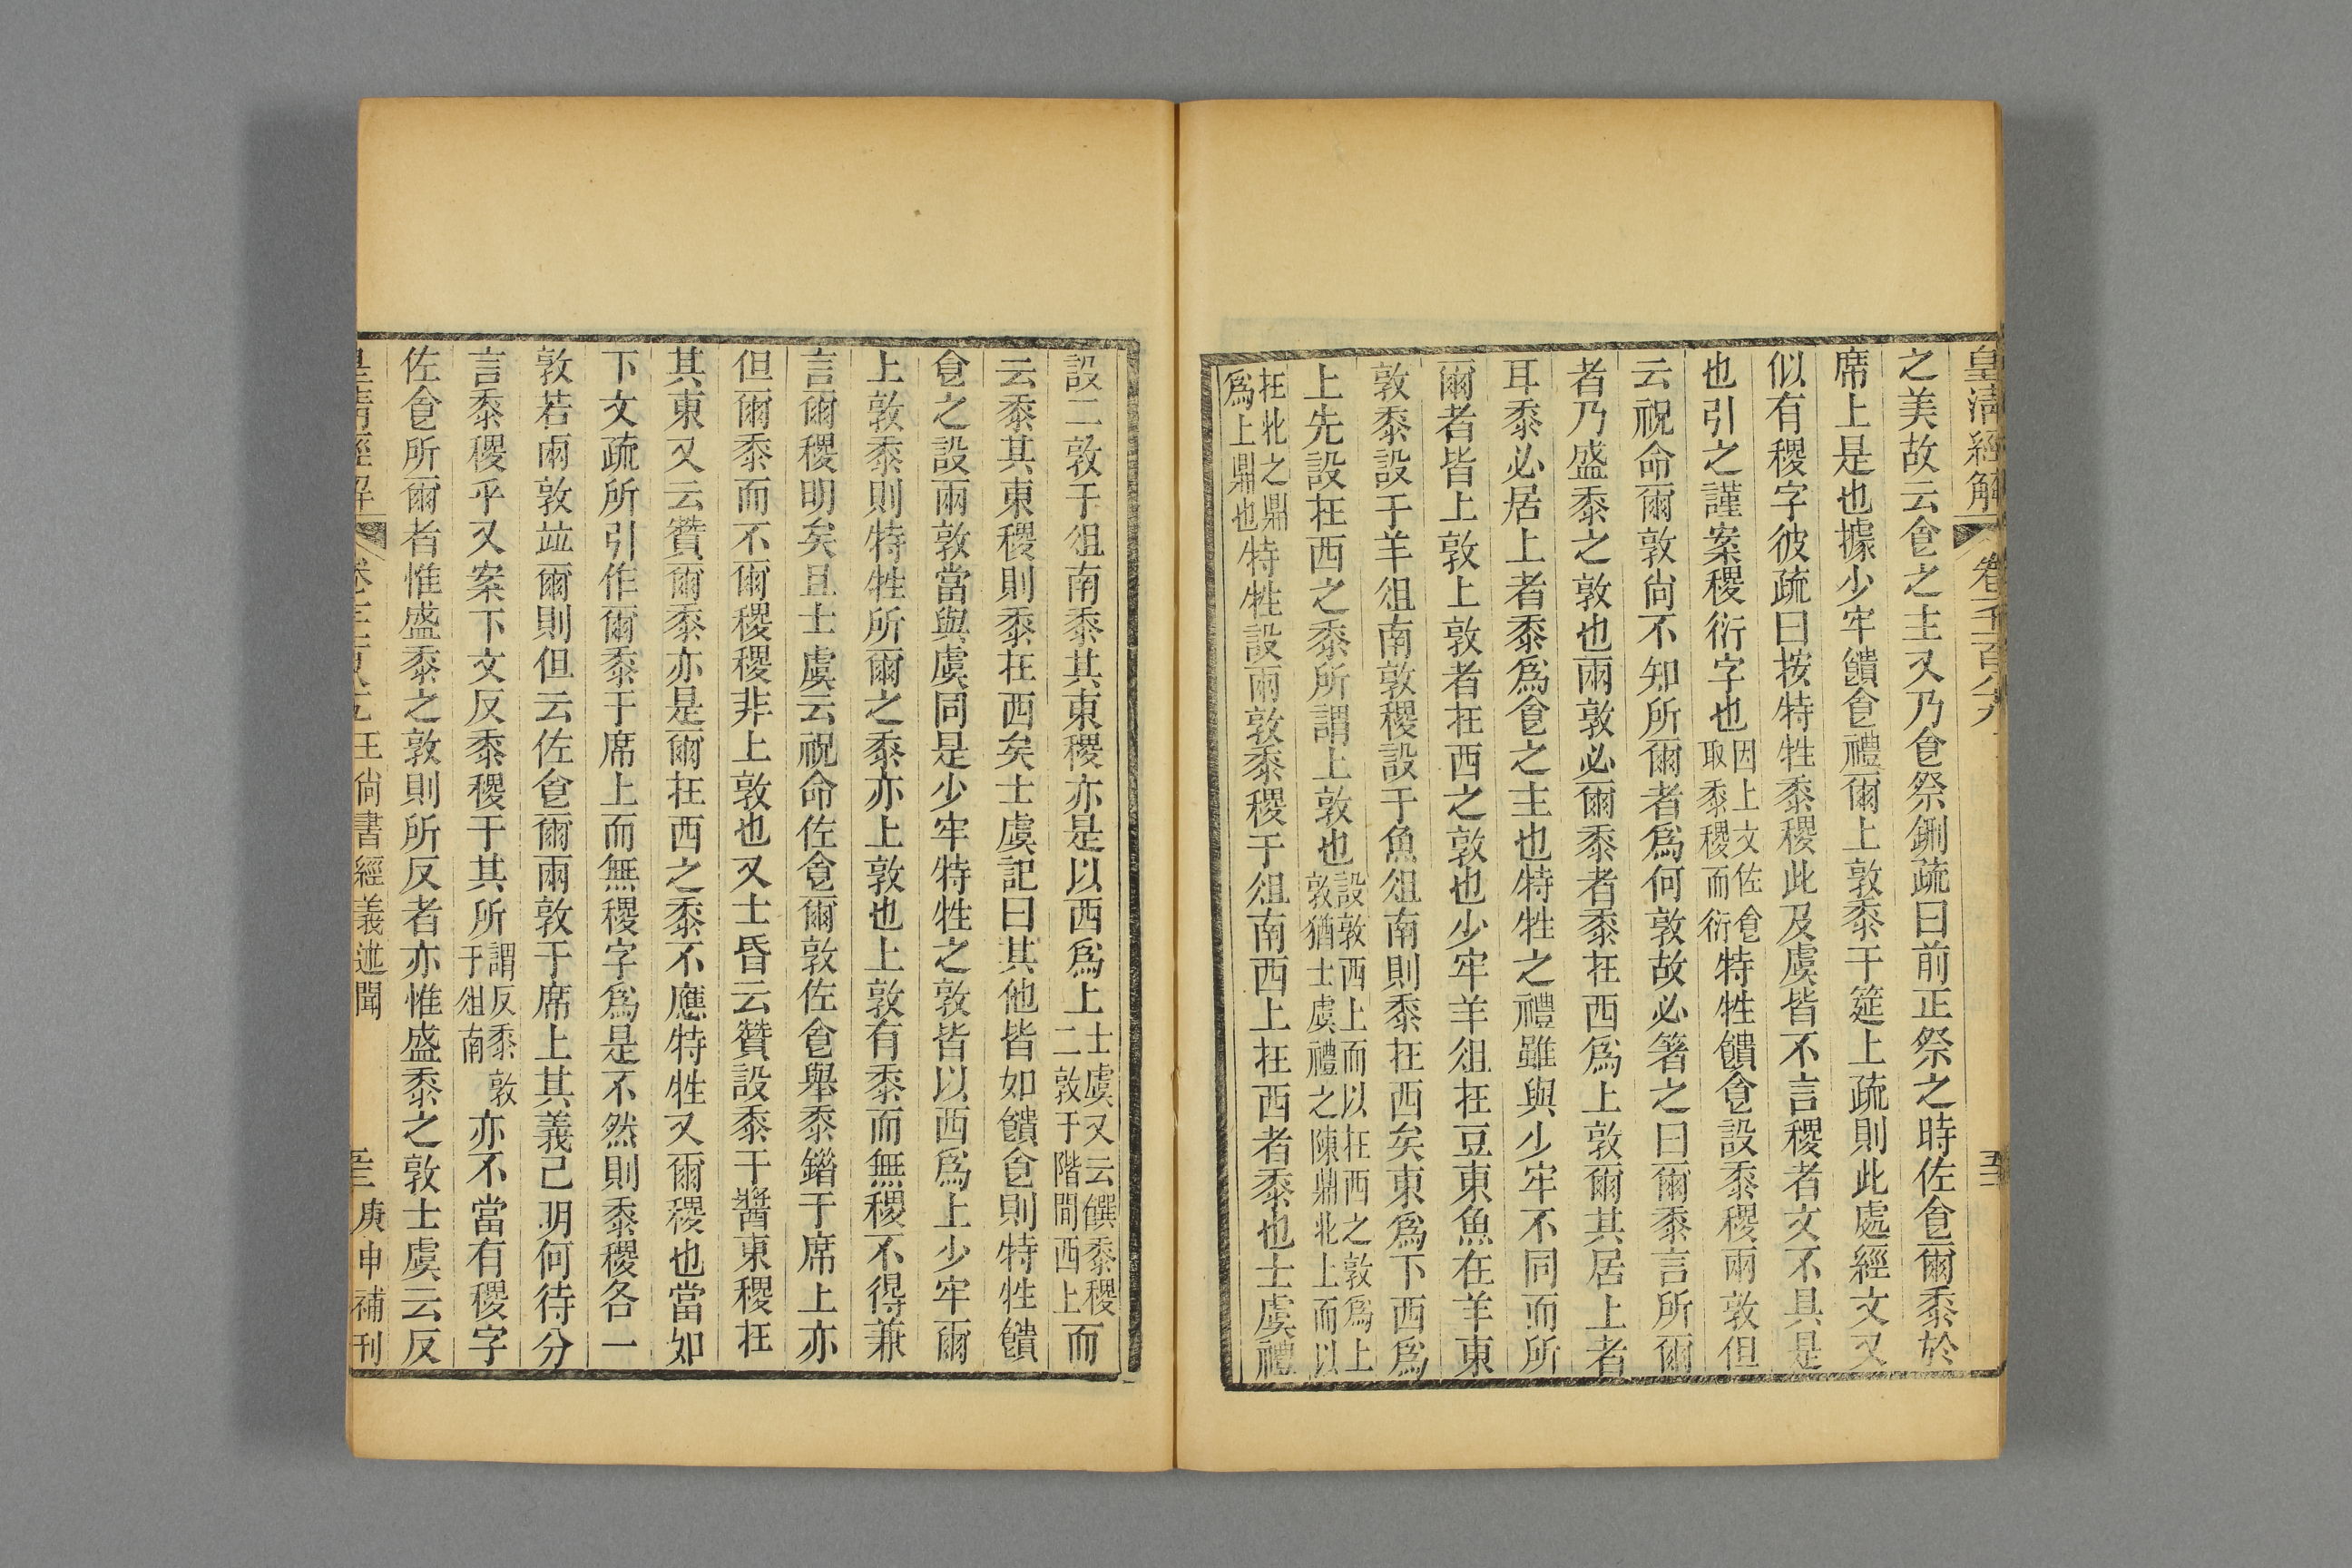 皇清經解 卷千一百八十
之美故云食之主又乃食祭鉶疏曰前正祭之時佐食爾黍於
席上是也據少牢饋食禮爾上敦黍于筵上疏則此處經文又
似有稷字彼疏曰按特牲黍稷此及虞皆不言稷者文不具是
也引之謹案稷衍字也因上文佐食取黍稷而衍特牲饋食設黍稷兩敦但
云祝命爾敦尙不知所爾者爲何敦故必箸之曰爾黍言所爾
者乃盛黍之敦也兩敦必爾黍者黍在西爲上敦爾其居上者
耳黍必居上者黍爲食之主也特牲之禮雖與少牢不同而所
爾者皆上敦上敦者在西之敦也少牢羊俎在豆東魚在羊東
敦黍設于羊俎南敦稷設于魚俎南則黍在西矣東爲下西爲
上先設在西之黍所謂上敦也設敦西上而以在西之敦爲上敦猶士虞禮之陳鼎北上而以
在北之鼎爲上鼎也特牲設兩敦黍稷于俎南西上在西者黍也士虞禮
設二敦于俎南黍其東稷亦是以西爲上士虞又云饌黍稷二敦于階間西上而
云黍其東稷則黍在西矣士虞記曰其他皆如饋食則特牲饋
食之設兩敦當與虞同是少牢特牲之敦皆以西爲上少牢爾
上敦黍則特牲所爾之黍亦上敦也上敦有黍而無稷不得兼
言爾稷明矣且士虞云祝命佐食爾敦佐食舉黍錯于席上亦
但爾黍而不爾稷稷非上敦也又士昏云贊設黍于醬東稷在
其東又云贊爾黍亦是爾在西之黍不應特牲又爾稷也當如
下文疏所引作爾黍于席上而無稷字爲是不然則黍稷各一
敦若兩敦竝爾則但云佐食爾兩敦于席上其義已明何待分
言黍稷乎又案下文反黍稷于其所謂反黍敦于俎南亦不當有稷字
佐食所爾者惟盛黍之敦則所反者亦惟盛黍之敦士虞云反
皇清經解 王尙書經義述聞 庚申補刊